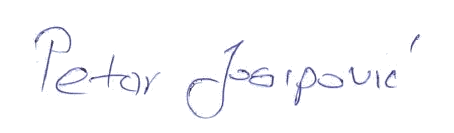 Petar Josipović